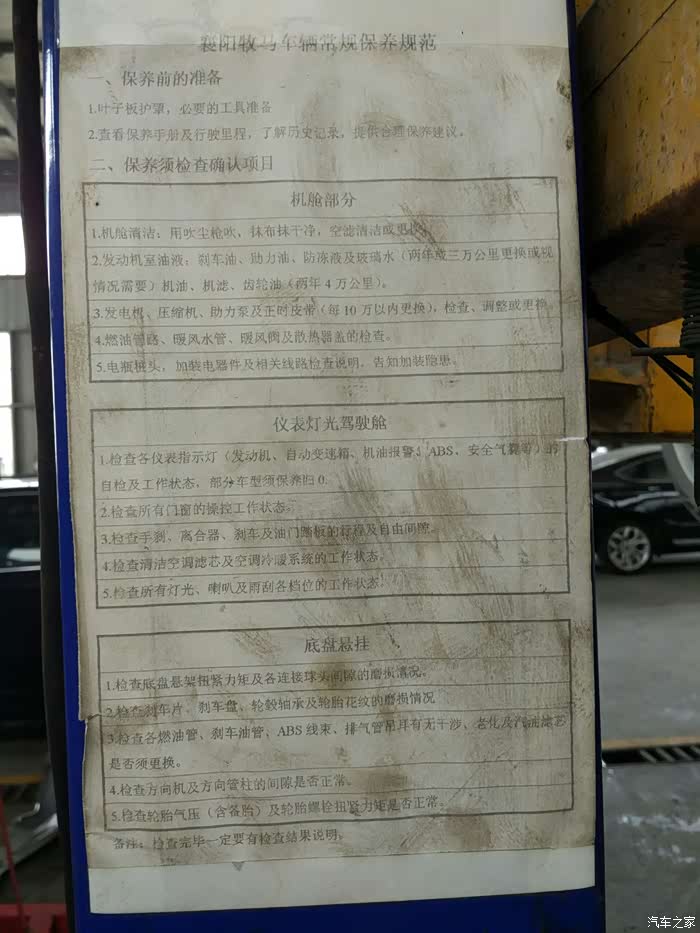 襄阳牧马车辆常规保养规范
一、保养前的准备
1.叶子板护罩，必要的工具准备
2.查看保养手册及行驶里程，了解历史记录，提供合理保养建议。
二、保养须检查确认项目
机舱部分
1.机舱清洁：用吹尘枪吹，抹布抹干净，空滤清洁或更换
2.发动机室油液：刹车油、助力油、防冻液及玻璃水（两年或三万公里更换或视
情况需要）机油、机滤、齿轮油（两年 4 万公里）。
3.发电机、压缩机、助力泵及正时皮带（每 10 万以内更换），检查、调整或更换
4.燃油管路、暖风水管、暖风阀及散热器盖的检查。
5.电瓶桩头，加装电器件及相关线路检查说明，告知加装隐患。
仪表灯光驾驶舱
1.检查各仪表指示灯（发动机、自动变速箱、机油报警、ABS、安全气囊等）的
自检及工作状态，部分车型须保养归 0.
2.检查所有门窗的操控工作状态。
3.检查手刹、离合器、刹车及油门踏板的行程及自由间隙。
4.检查清洁空调滤芯及空调冷暖系统的工作状态。
5.检查所有灯光、喇叭及雨刮各档位的工作状态。
底盘悬挂
1.检查底盘悬架扭紧力矩及各连接球头间隙的磨损情况。
2.检查刹车片、刹车盘、轮毂轴承及轮胎花纹的磨损情况
3.检查各燃油管、刹车油管、ABS 线束、排气管吊耳有无干涉、老化及汽油滤芯
是否须更换。
4.检查方向机及方向管柱的间隙是否正常。
5.检查轮胎气压（含备胎）及轮胎螺栓扭紧力矩是否正常。
备注：检查完毕一定要有检查结果说明。
汽车之家